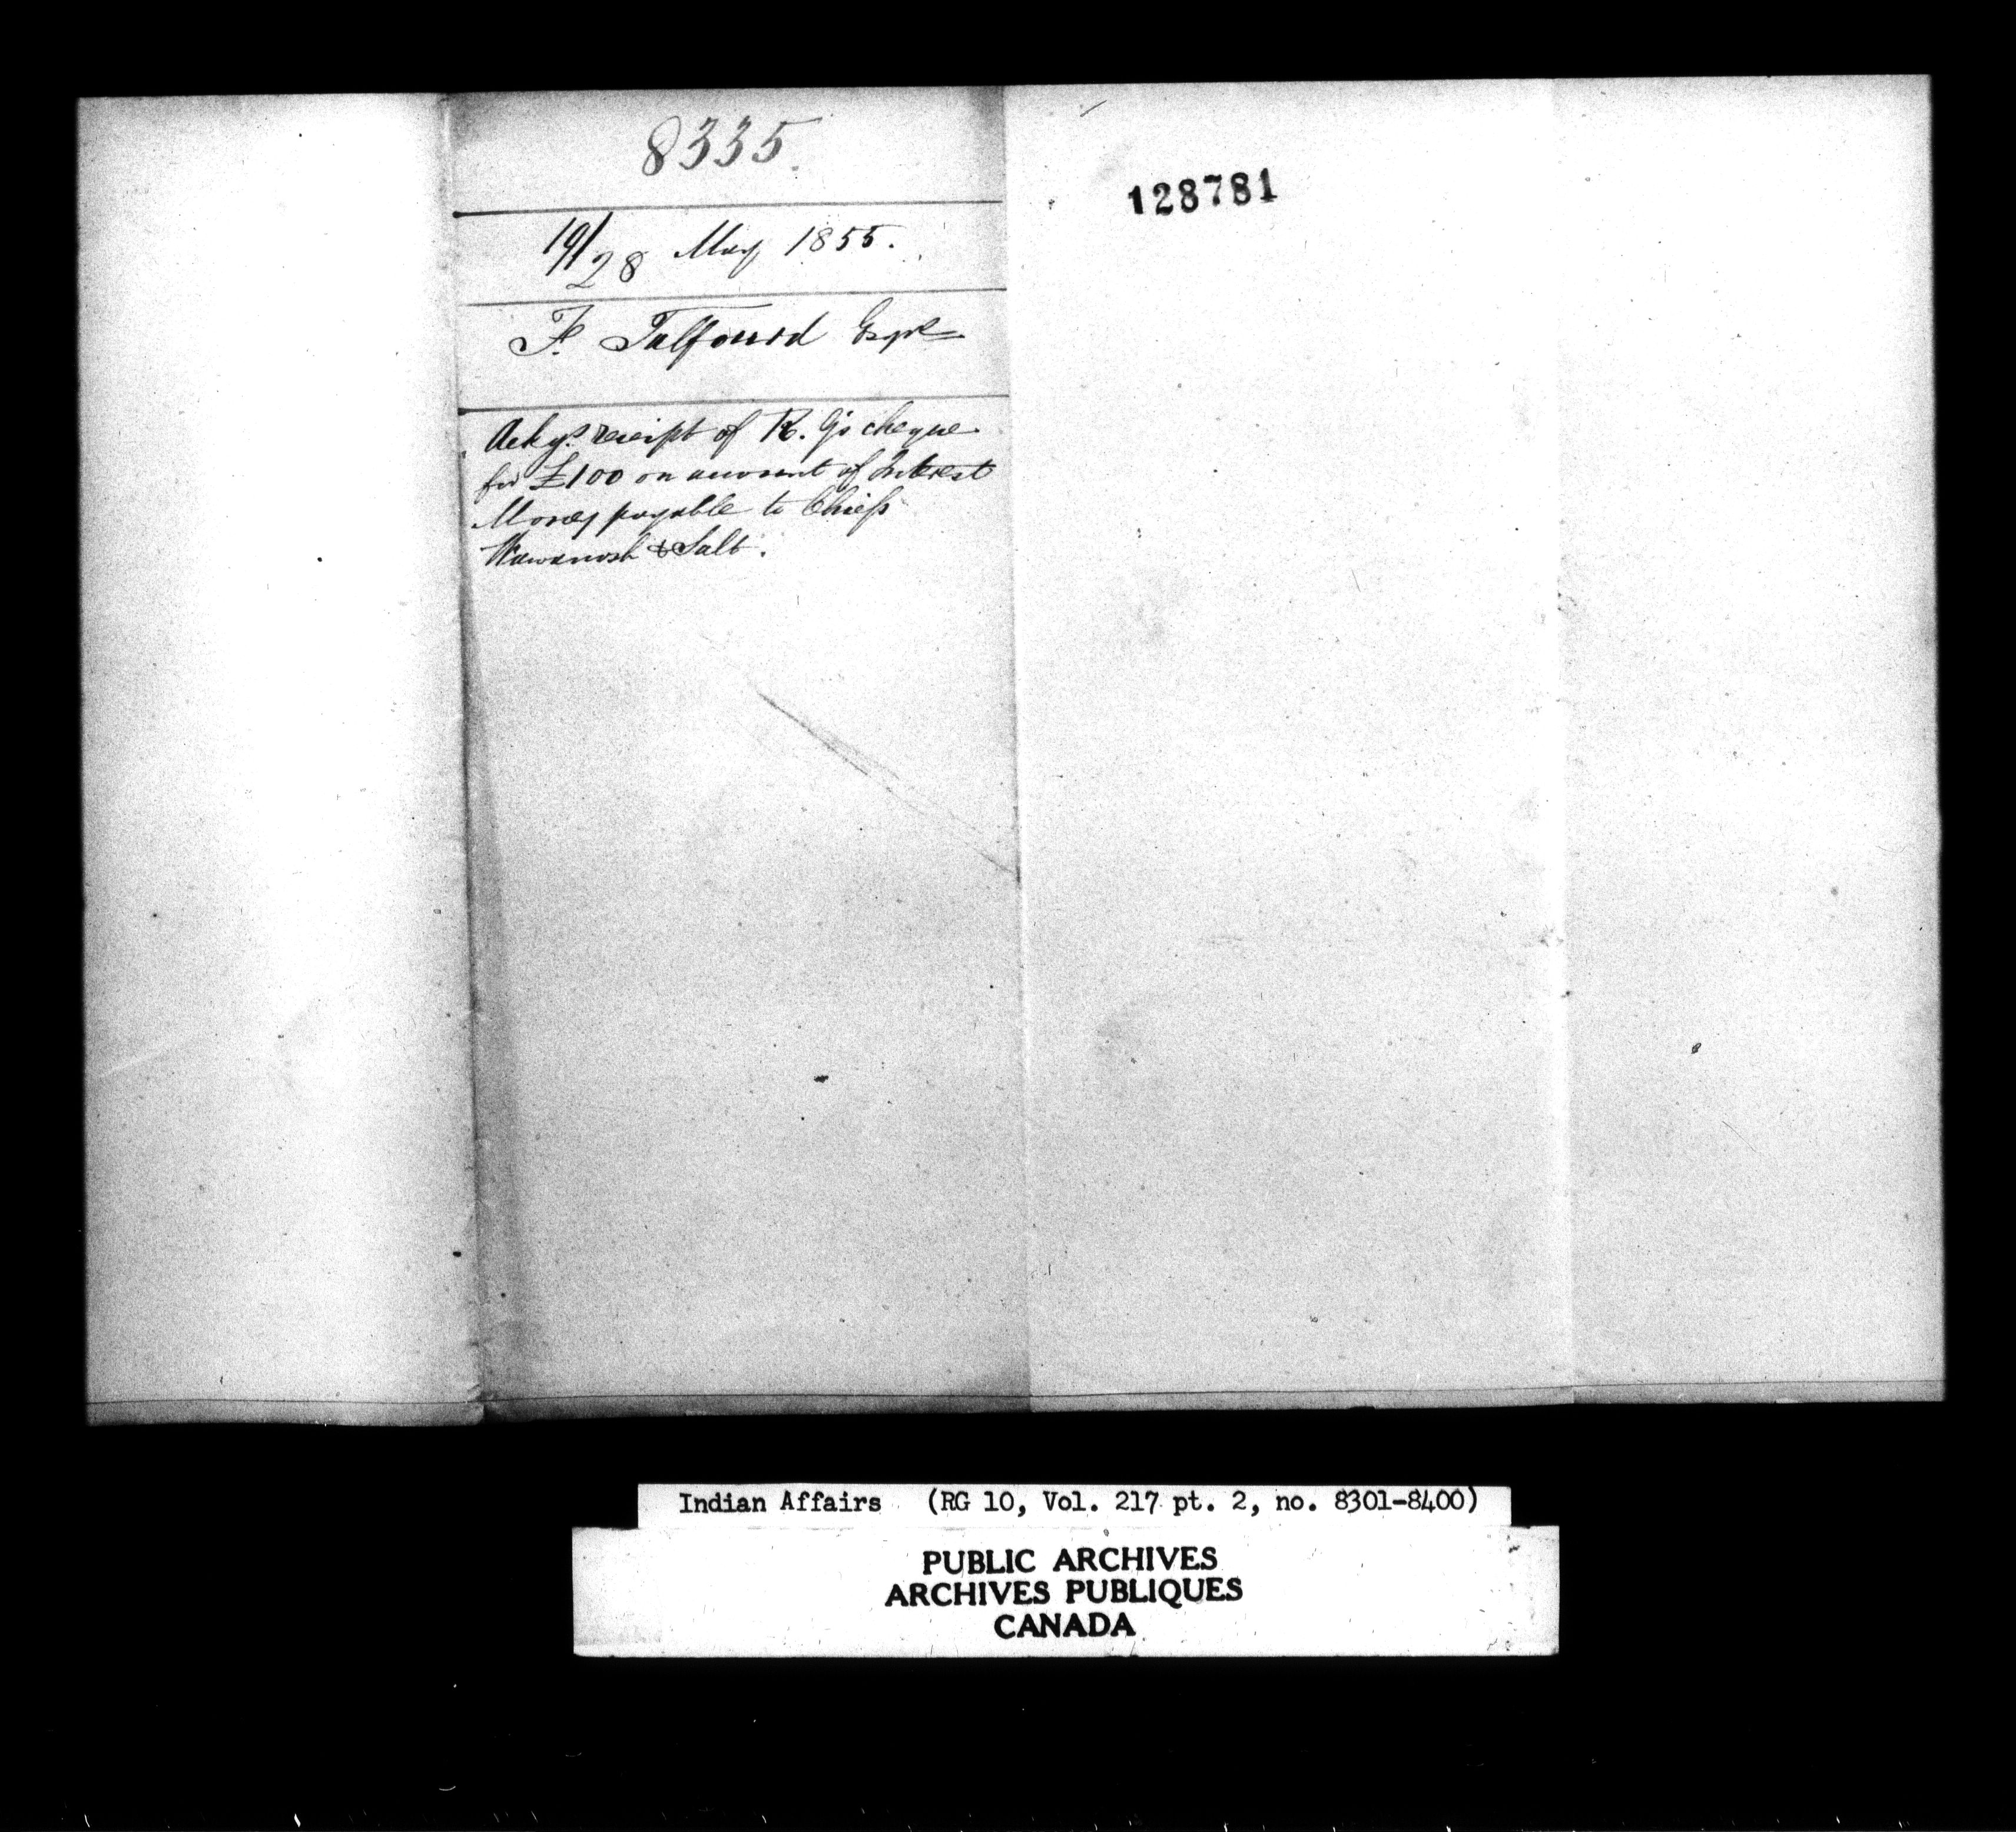 8335.
19/28 May 1855.
F. Talfourd Esqre
Ackgs. receipt of R. G's cheque
for £100 on account of Interest
Money payable to Chiefs
Wawanosh & Salt.
128781
Indian Affairs (RG 10, Vol. 217 pt. 2, no. 8301-8400)
PUBLIC ARCHIVES
ARCHIVES PUBLIQUES
CANADA